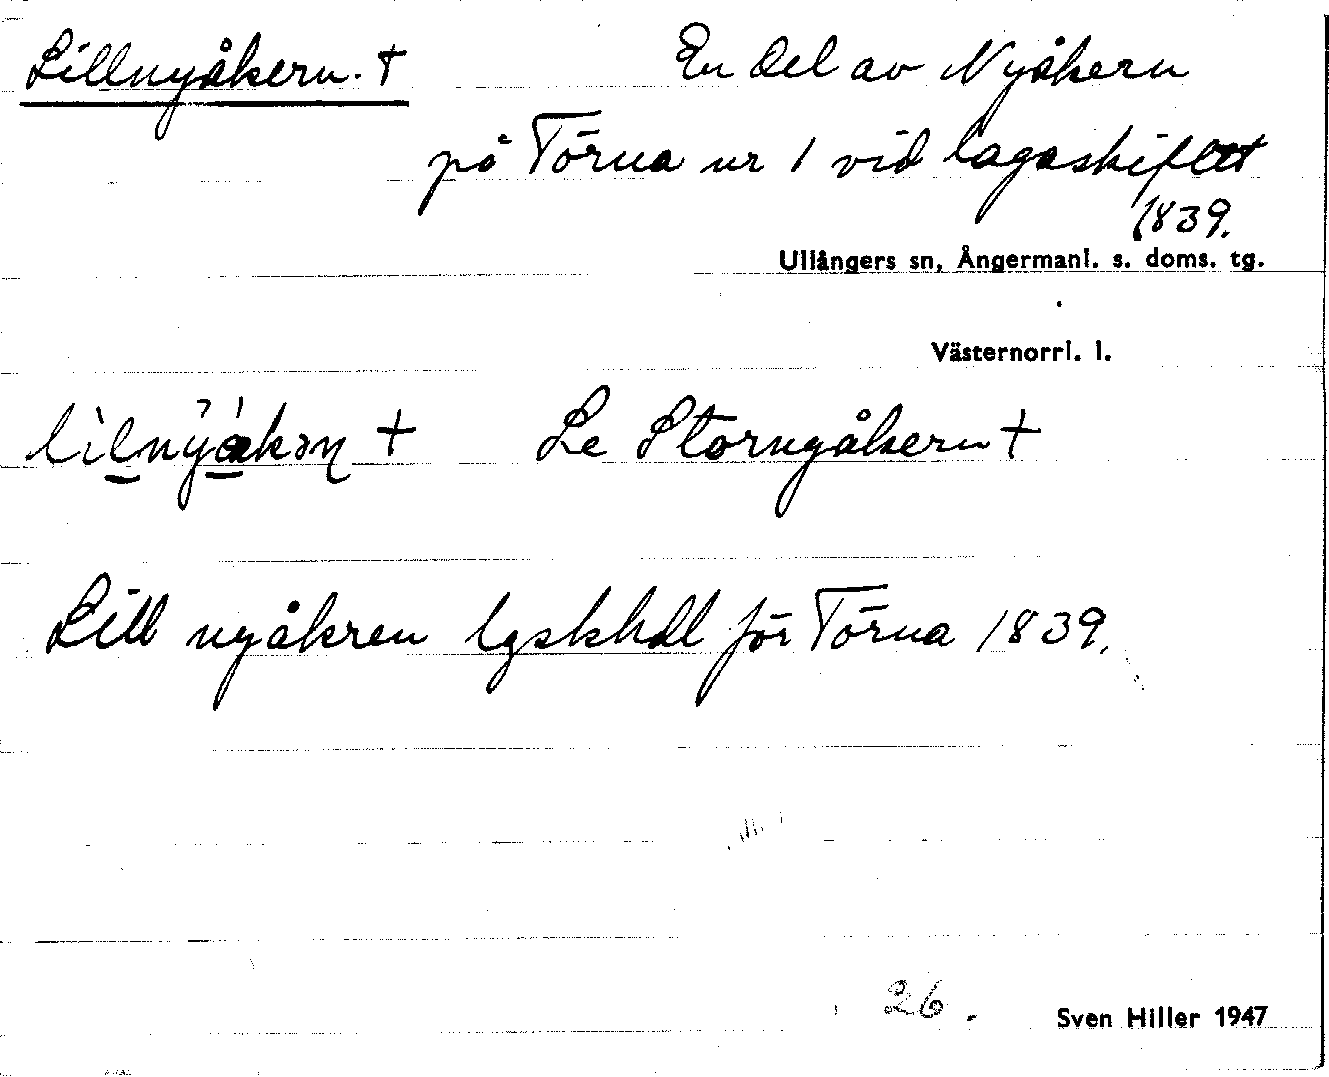 Lillnyåkern. † En del av Nyåkern
på Törna nr 1 vid lagaskiftet
1839.
Ullångers sn, Ångermanl. s. doms. tg.
Västernorrl. l.
† Se Stornyåkern †
Lill nyåkren lgskhdl för Törna 1839.
26.
Sven Hiller 1947